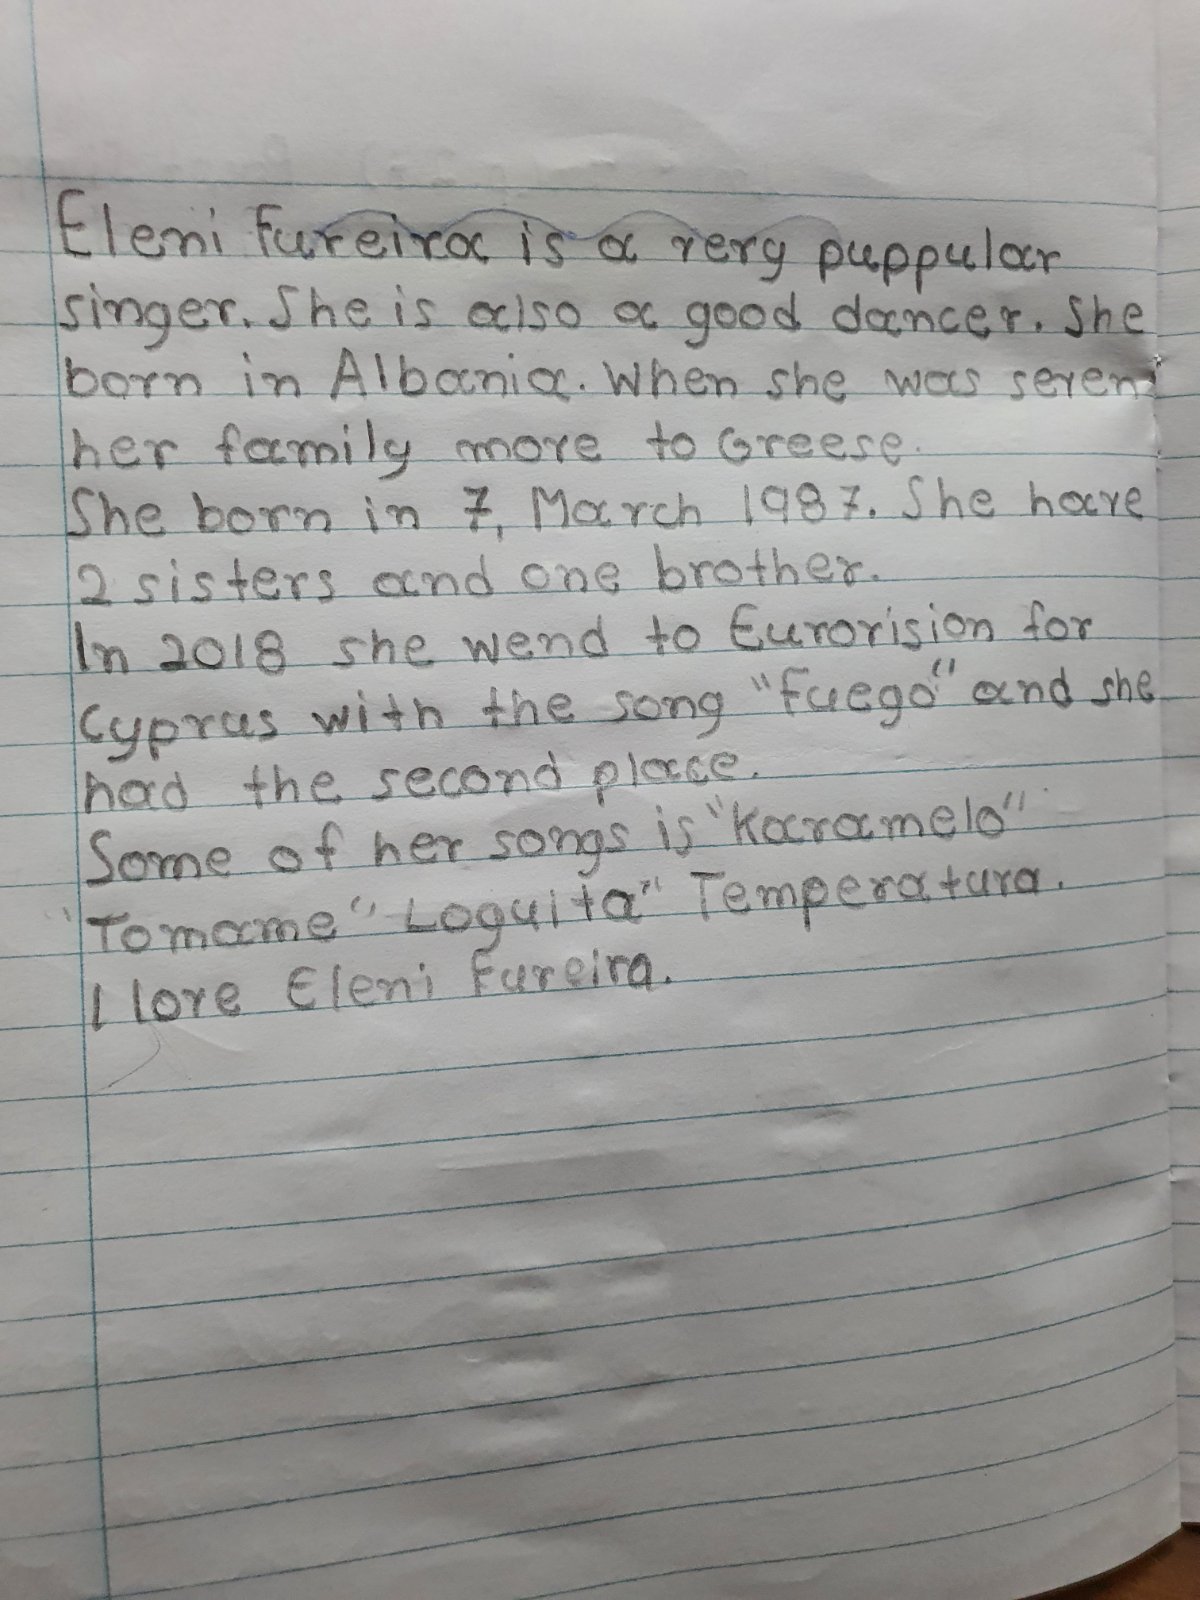 Eleni Fureira is a very puppular
singer. She is also a good dancer. She
born in Albania. When she was seven
her family move to Greese.
She born in 7, March 1987. She have
2 sisters and one brother.
In 2018 she wend to Eurovision for
Cyprus with the song "fuego" and she
had the second place.
Some of her songs is "Karamelo"
"Tomame" Loquita" Temperatura.
I love Eleni Fureira.